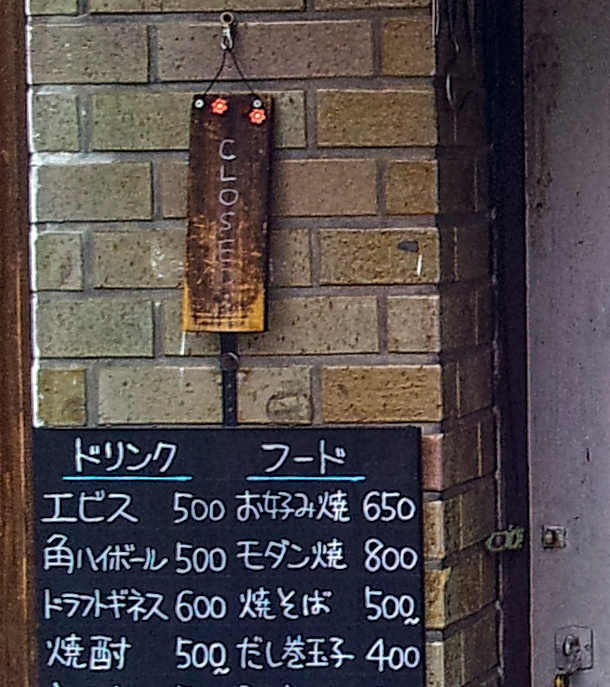 CLOSE
ドリンク
エビス 500
角ハイボール 500
ドラフトギネス 600
焼酎 500〜
フード
お好み焼 650
モダン焼 800
焼そば 500〜
だし巻玉子 400